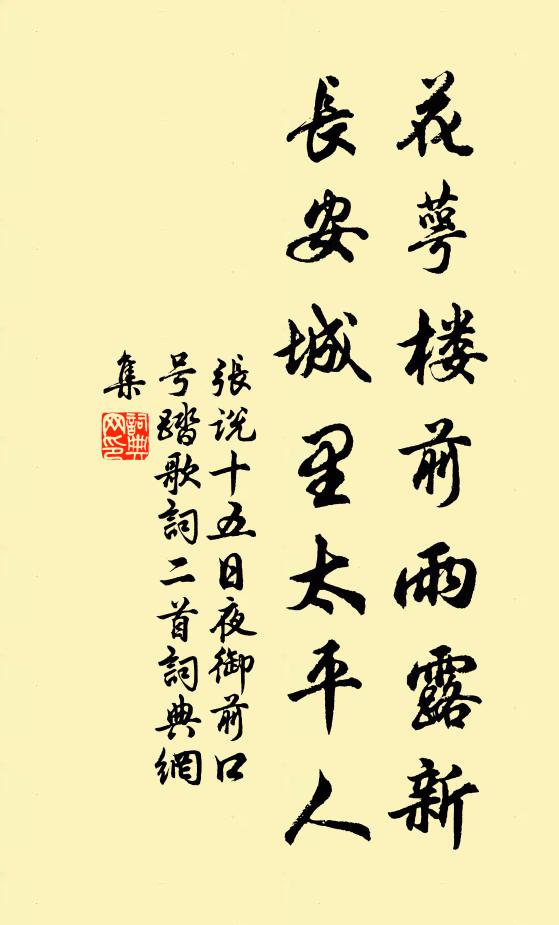 花萼楼前雨露新
長安城里太平人
張説十五日夜御前口
号踏歌詞二首詞典網
集
詞典
网印